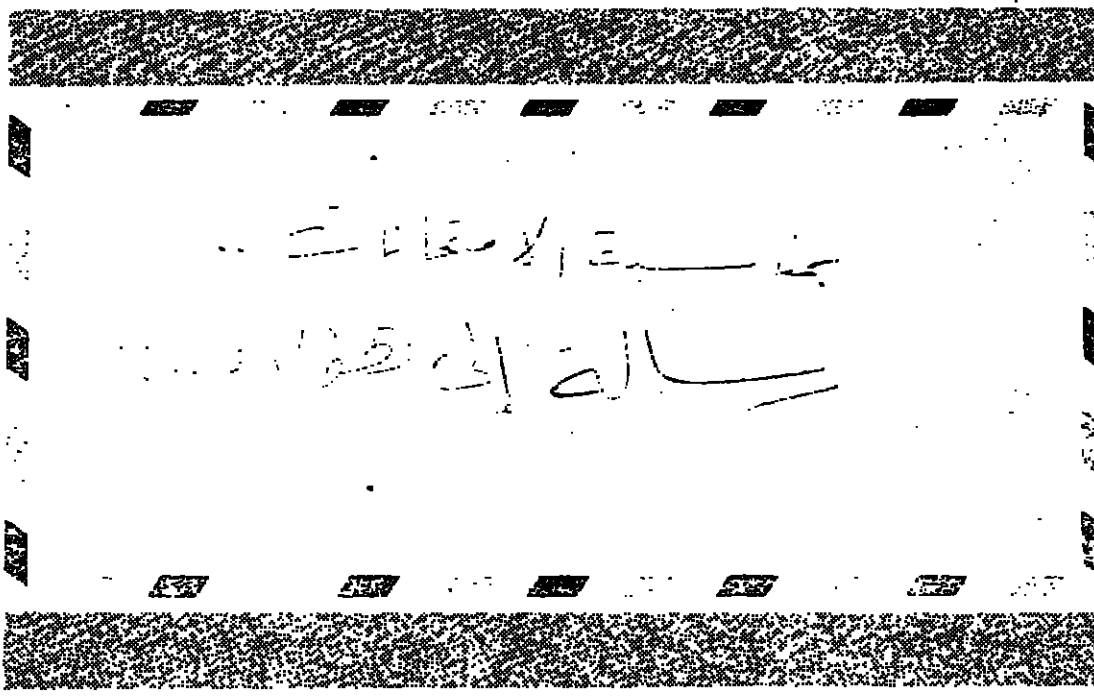 بمناسبة الامتحانات ..
رسالة إلى